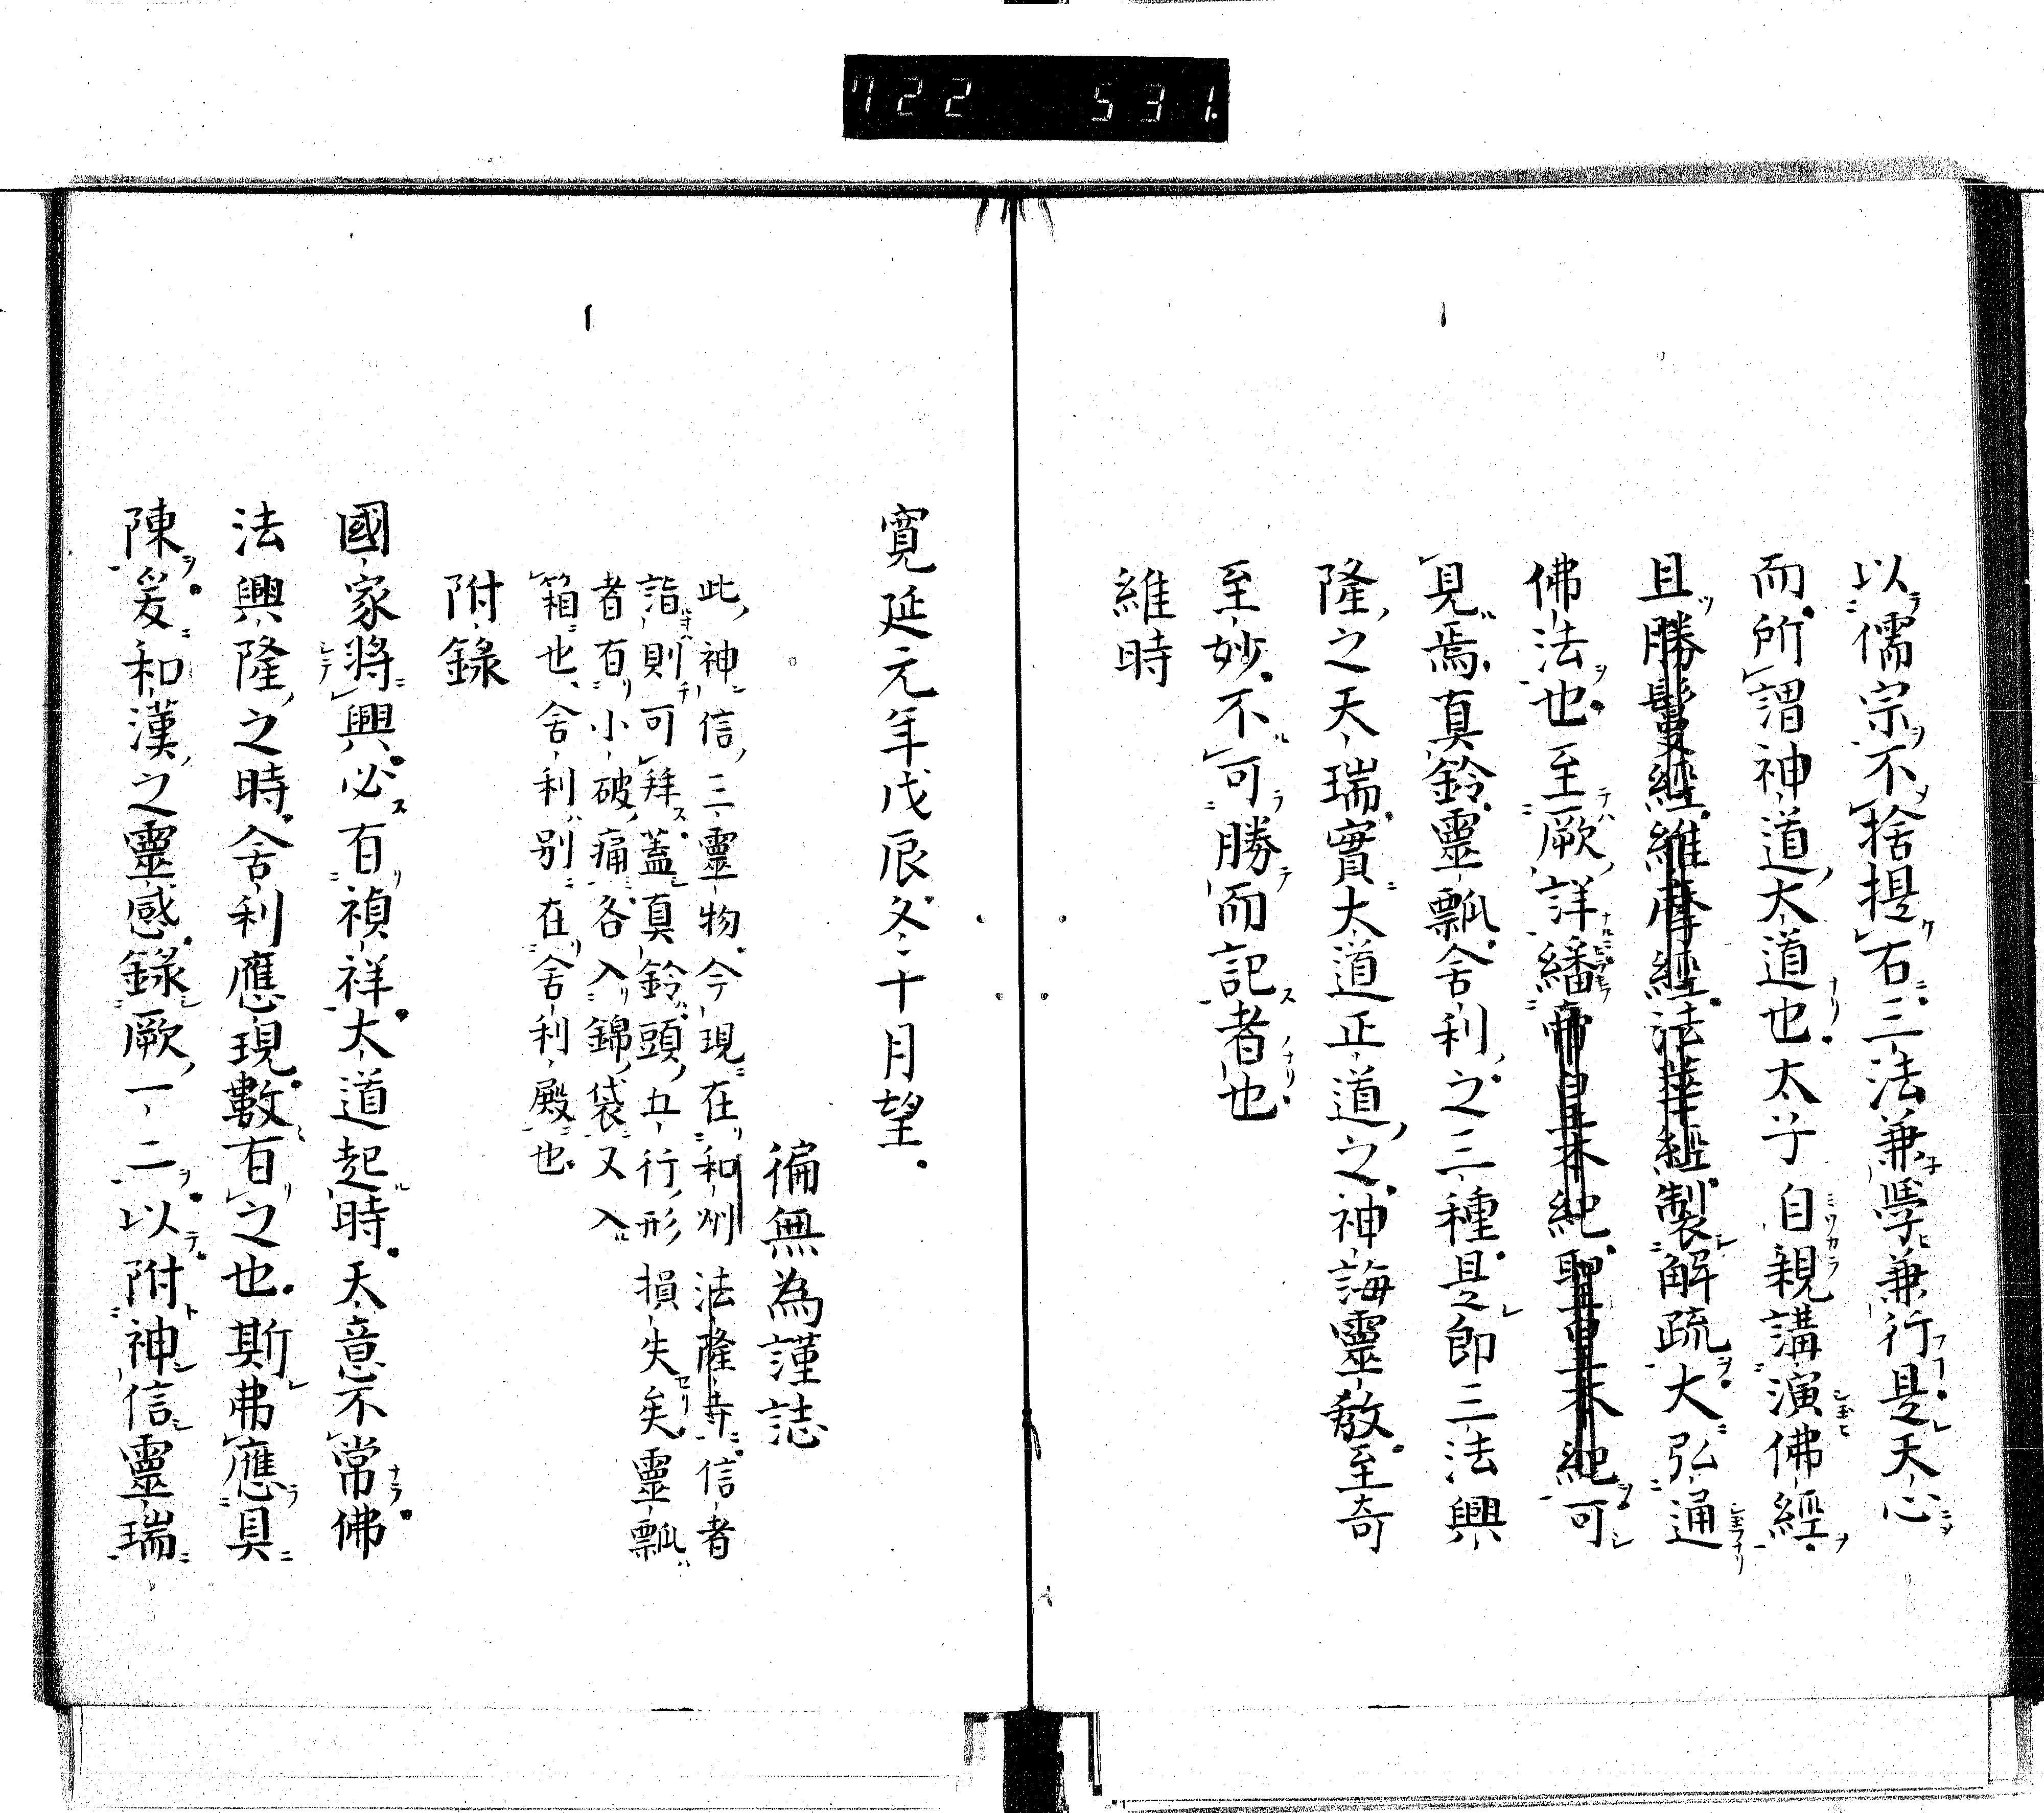 722 531.
以儒宗不捨提右三法兼學兼行是天心
而所謂神道大道也太子自親講演佛經
且勝鬘經維摩經法華經製解疏大弘通
佛法也至厥詳繙帝皇本紀聖皇本紀可
見焉真鈴靈瓢舍利之三種是即三法興
隆之天瑞實大道正道之神誨靈教至奇
至妙不可勝而記者也
維時
寛延元年戊辰冬十月望
徧無為謹誌
此神信三靈物今現在和州法隆寺信者
詣則可拜蓋真鈴頭五行形損失矣靈瓢
者有小破痛各入錦袋又入
箱也舍利別在舍利殿也
附錄
國家將興必有禎祥大道起時天意不常佛
法興隆之時舍利應現數有之也斯弗應具
陳爰和漢之靈感錄厥一二以附神信靈瑞